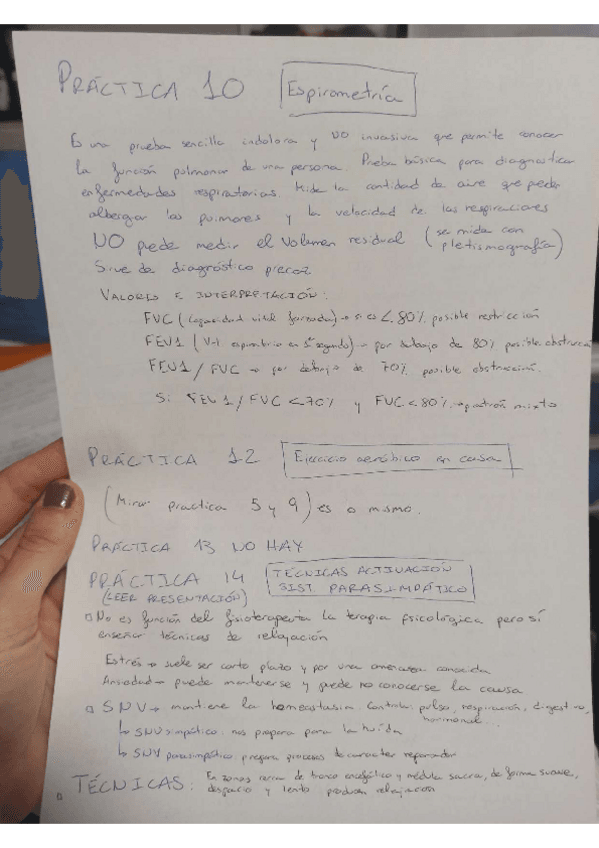 PRÁCTICA 10 Espirometría
Es una prueba sencilla indolora y NO invasiva que permite conocer
la función pulmonar de una persona. Prueba básica para diagnostica
enfermedades respiratorias. Mide la cantidad de aire que pueden
albergar los pulmones y la velocidad de las respiraciones
NO puede medir el volumen residual (se mide con pletismografía)
Sirve de diagnóstico precoz.
VALORES E INTERPRETACIÓN:
FVC (capacidad vital forzada) → si es <80% posible restricción
FEV1 (V. espiratorio en 1º segundo) → por debajo de 80% posible obstrucción
FEV1 / FVC → por debajo de 70% posible obstrucción.
Si FEV1/FVC <70% y FVC <80% → patrón mixto
PRÁCTICA 12 Ejercicio aeróbico en casa
(Mirar practica 5 y 9) es o mismo.
PRÁCTICA 13 NO HAY
PRÁCTICA 14 TÉCNICAS ACTIVACIÓN
(LEER PRESENTACIÓN) SIST. PARASIMPÁTICO
No es función del fisioterapeuta la terapia psicológica pero sí
enseñar técnicas de relajación
Estrés → suele ser corto plazo y por una amenaza conocida
Ansiedad → puede mantenerse y puede no conocerse la causa
SNV → mantiene la homeostasia. Controla: pulso, respiración, digestivo,
hormonal...
↳ SNV simpático: nos prepara para la huida
↳ SNV parasimpático: prepara procesos de caracter reparador
TÉCNICAS: En zonas cerca de tronco encefálico y médula sacra, de forma suave,
despacio y lento producen relajación